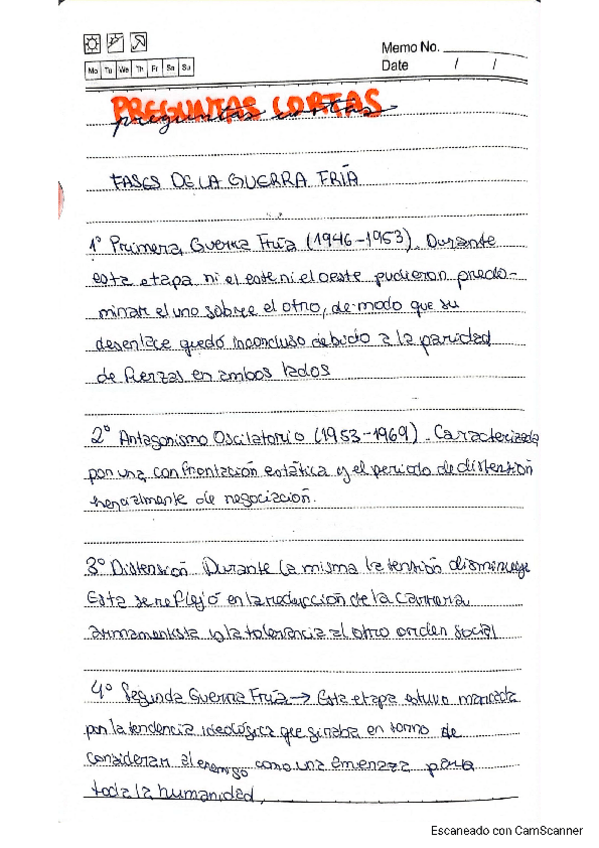 Memo No.
Mo Tu We Th Fr Sa Su
Date / /
PREGUNTAS CORTAS
preguntas cortas
FASES DE LA GUERRA FRÍA
1º Primera Guerra Fría (1946-1953). Durante
esta etapa ni el este ni el oeste pudieron predo-
minar el uno sobre el otro, de modo que su
desenlace quedó inconcluso debido a la paridad
de fuerzas en ambos lados
2º Antagonismo Oscilatorio (1953-1969). Caracterizada
por una confrontación estática y el periodo de distensión
de negociación.
3º Distensión. Durante la misma la tensión disminuye
Esta se reflejó en la reducción de la carrera
armamentista y la tolerancia al otro orden social
4º Segunda Guerra Fría → Esta etapa estuvo marcada
por la tendencia ideológica que giraba en torno de
considerar al enemigo como una amenaza para
toda la humanidad.
Escaneado con CamScanner